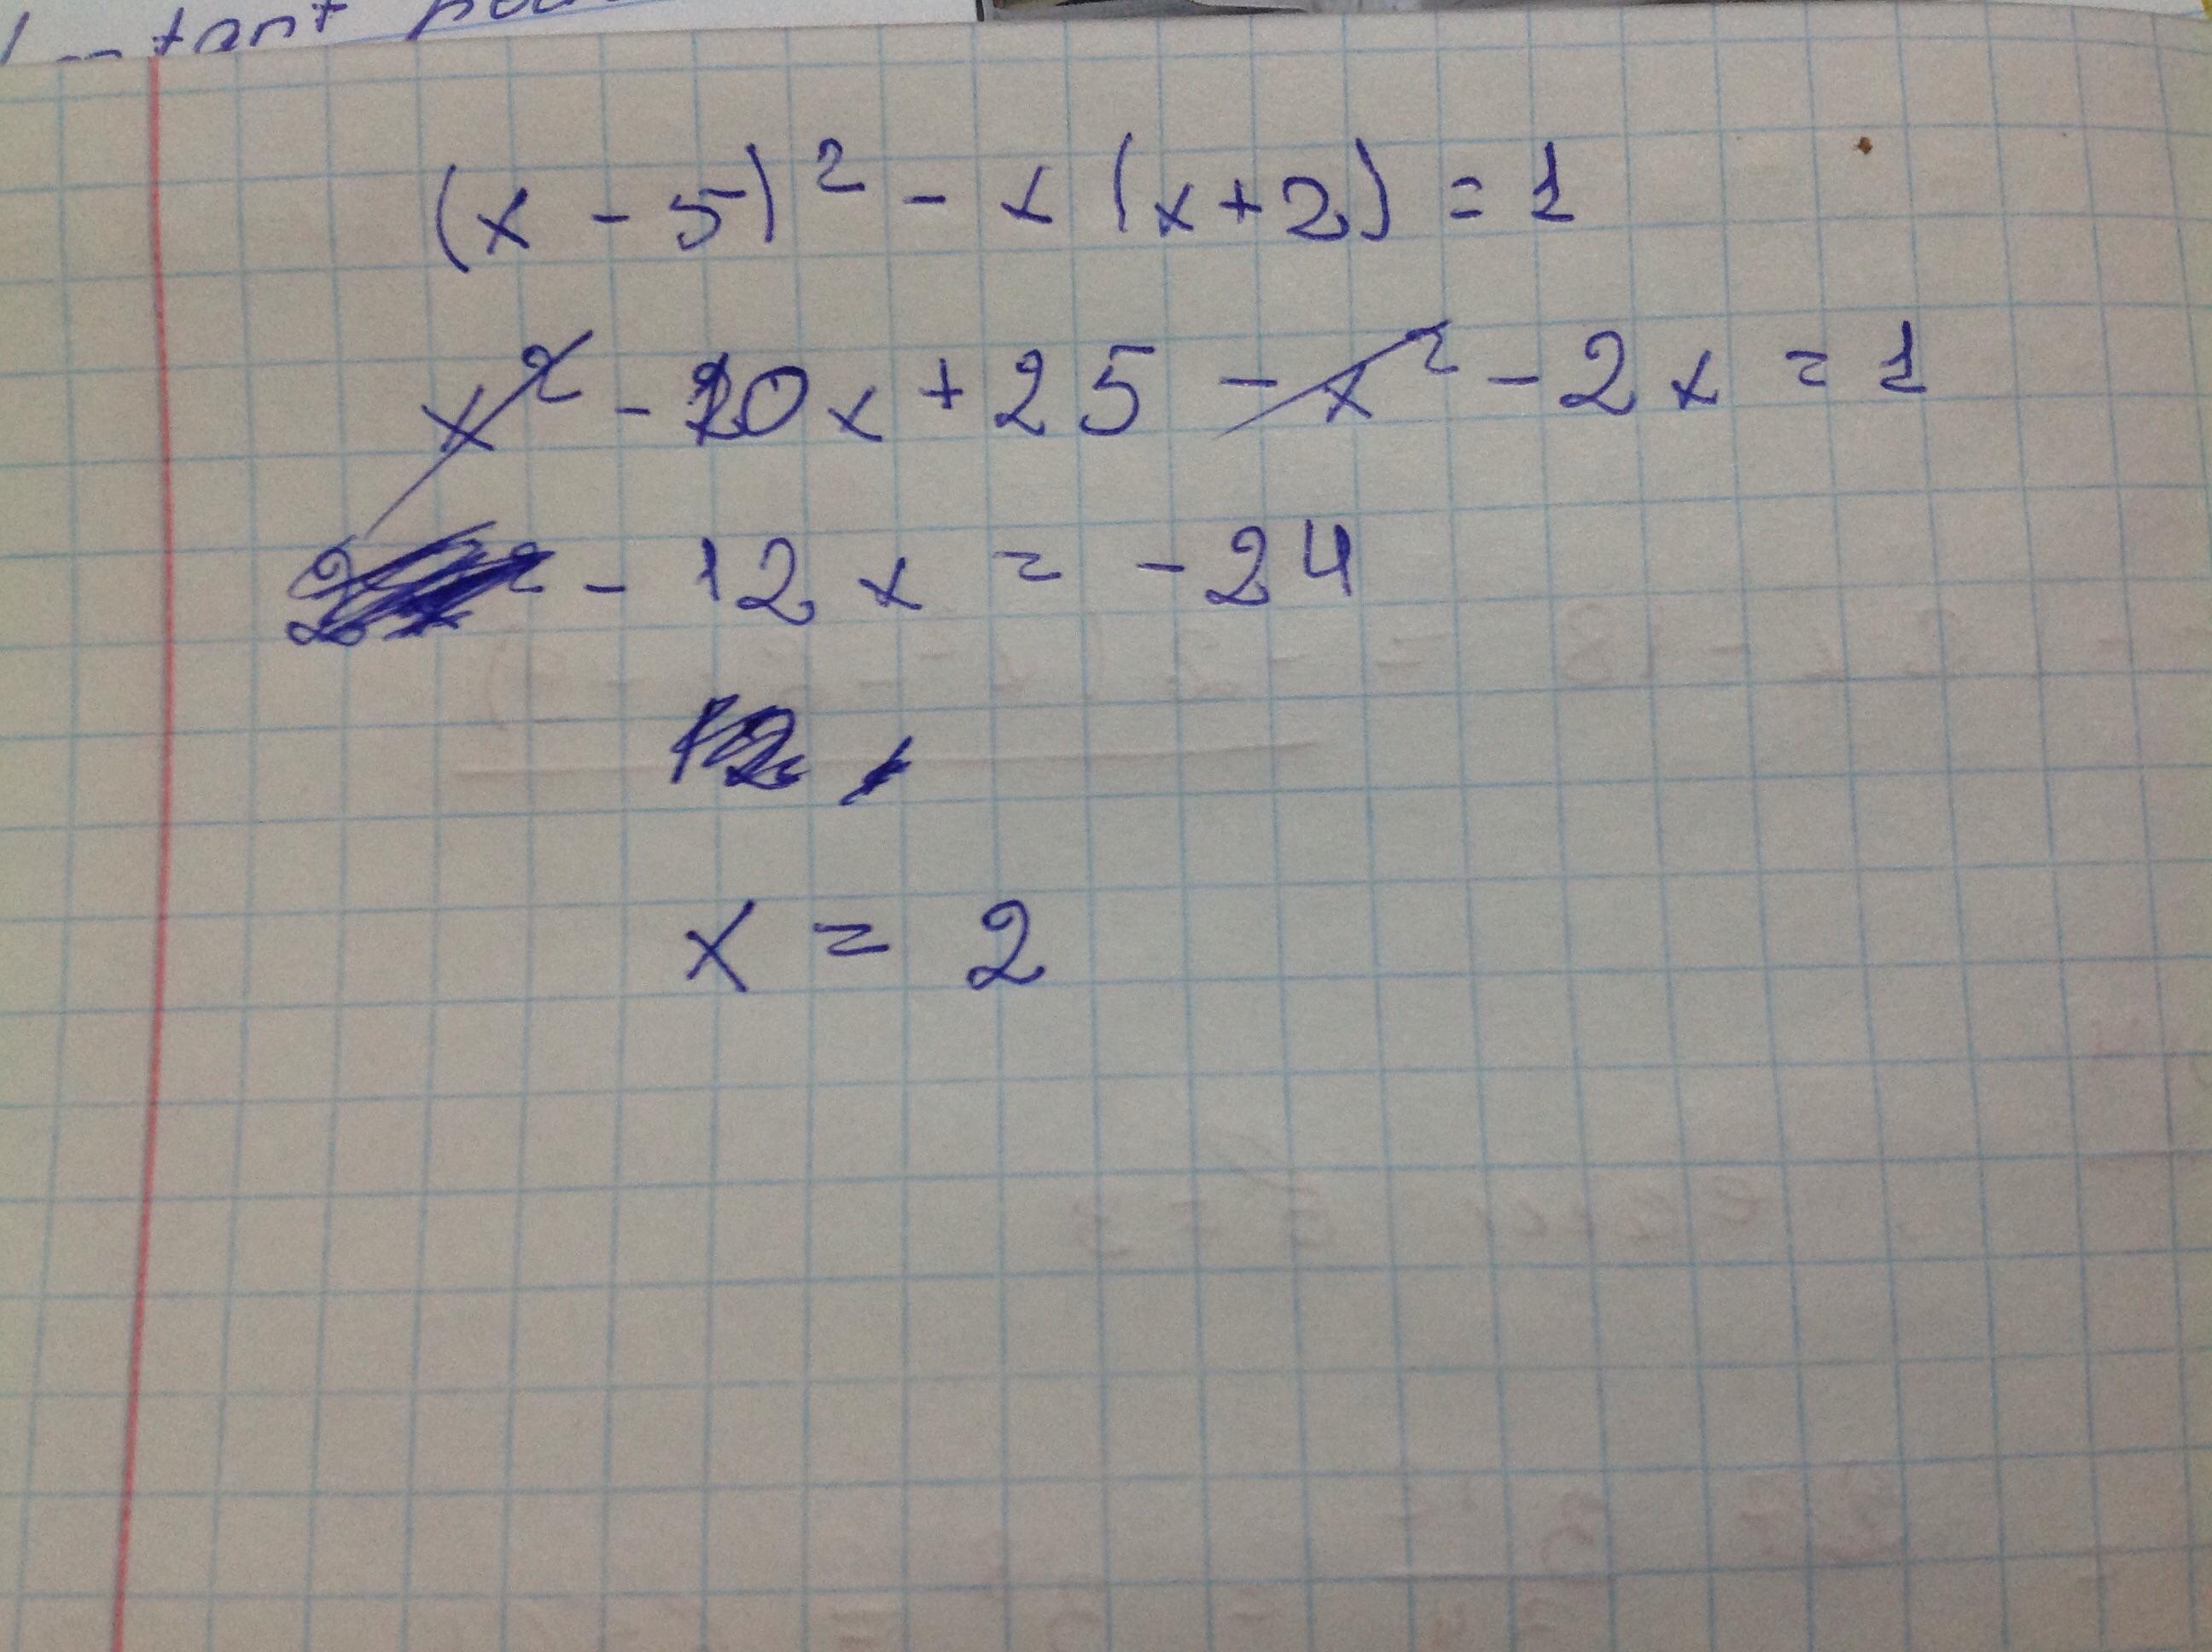 (x - 5)² - x (x+2) = 1
x² - 10x + 25 - x² - 2x = 1
- 12x = -24
x = 2